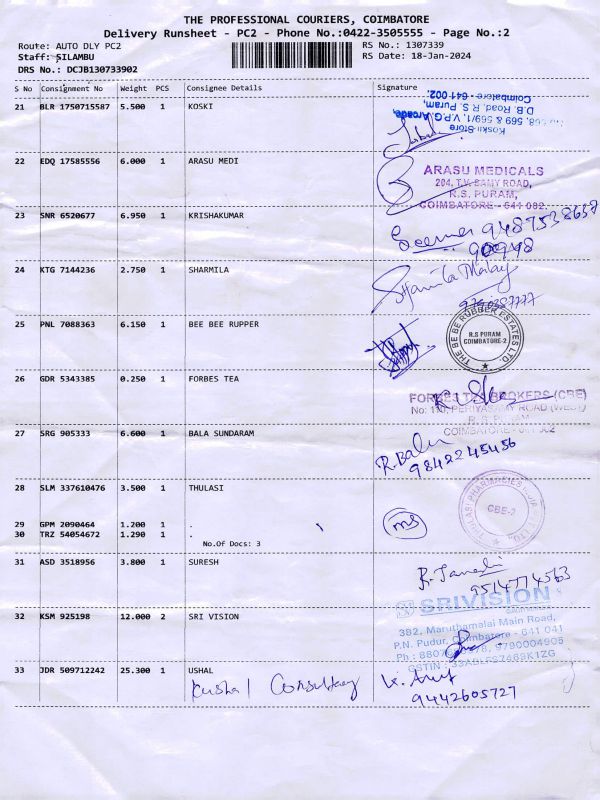 THE PROFESSIONAL COURIERS, COIMBATORE
Delivery Runsheet - PC2 - Phone No.:0422-3505555 - Page No.:2
Route: AUTO DLY PC2
RS No.: 1307339
Staff: SILAMBU
RS Date: 18-Jan-2024
DRS No.: DCJB130733902
S No Consignment No Weight PCS Consignee Details Signature
21 BLR 1750715587 5.500 1 KOSKI
Koskii-Store
568, 569 & 569/1, V.P.G Arcade,
D.B. Road, R.S. Puram,
Coimbatore - 641 002.
22 EDQ 17585556 6.000 1 ARASU MEDI
ARASU MEDICALS
204, T.V. SAMY ROAD,
R.S. PURAM,
COIMBATORE - 641 002.
23 SNR 6520677 6.950 1 KRISHAKUMAR
90948
24 KTG 7144236 2.750 1 SHARMILA
Sharmila
25 PNL 7088363 6.150 1 BEE BEE RUPPER
THE BE BE RUBBER ESTATES LTD.
R.S PURAM
COIMBATORE-2
26 GDR 5343385 0.250 1 FORBES TEA
FORBES TEA BROKERS (CBE)
PERIYASAMY ROAD (WEST)
COIMBATORE
27 SRG 905333 6.600 1 BALA SUNDARAM
R. Balu
9842245456
28 SLM 337610476 3.500 1 THULASI
THULASI PHARMACIES
CBE-2
ms
29 GPM 2090464 1.200 1 .
30 TRZ 54054672 1.290 1 .
No.Of Docs: 3
31 ASD 3518956 3.800 1 SURESH
9514774563
32 KSM 925198 12.000 2 SRI VISION
SRIVISION
382, Maruthamalai Main Road,
P.N. Pudur, Coimbatore - 641 041
9790004905
33 JDR 509712242 25.300 1 USHAL
Kushal Consultancy
9442605727